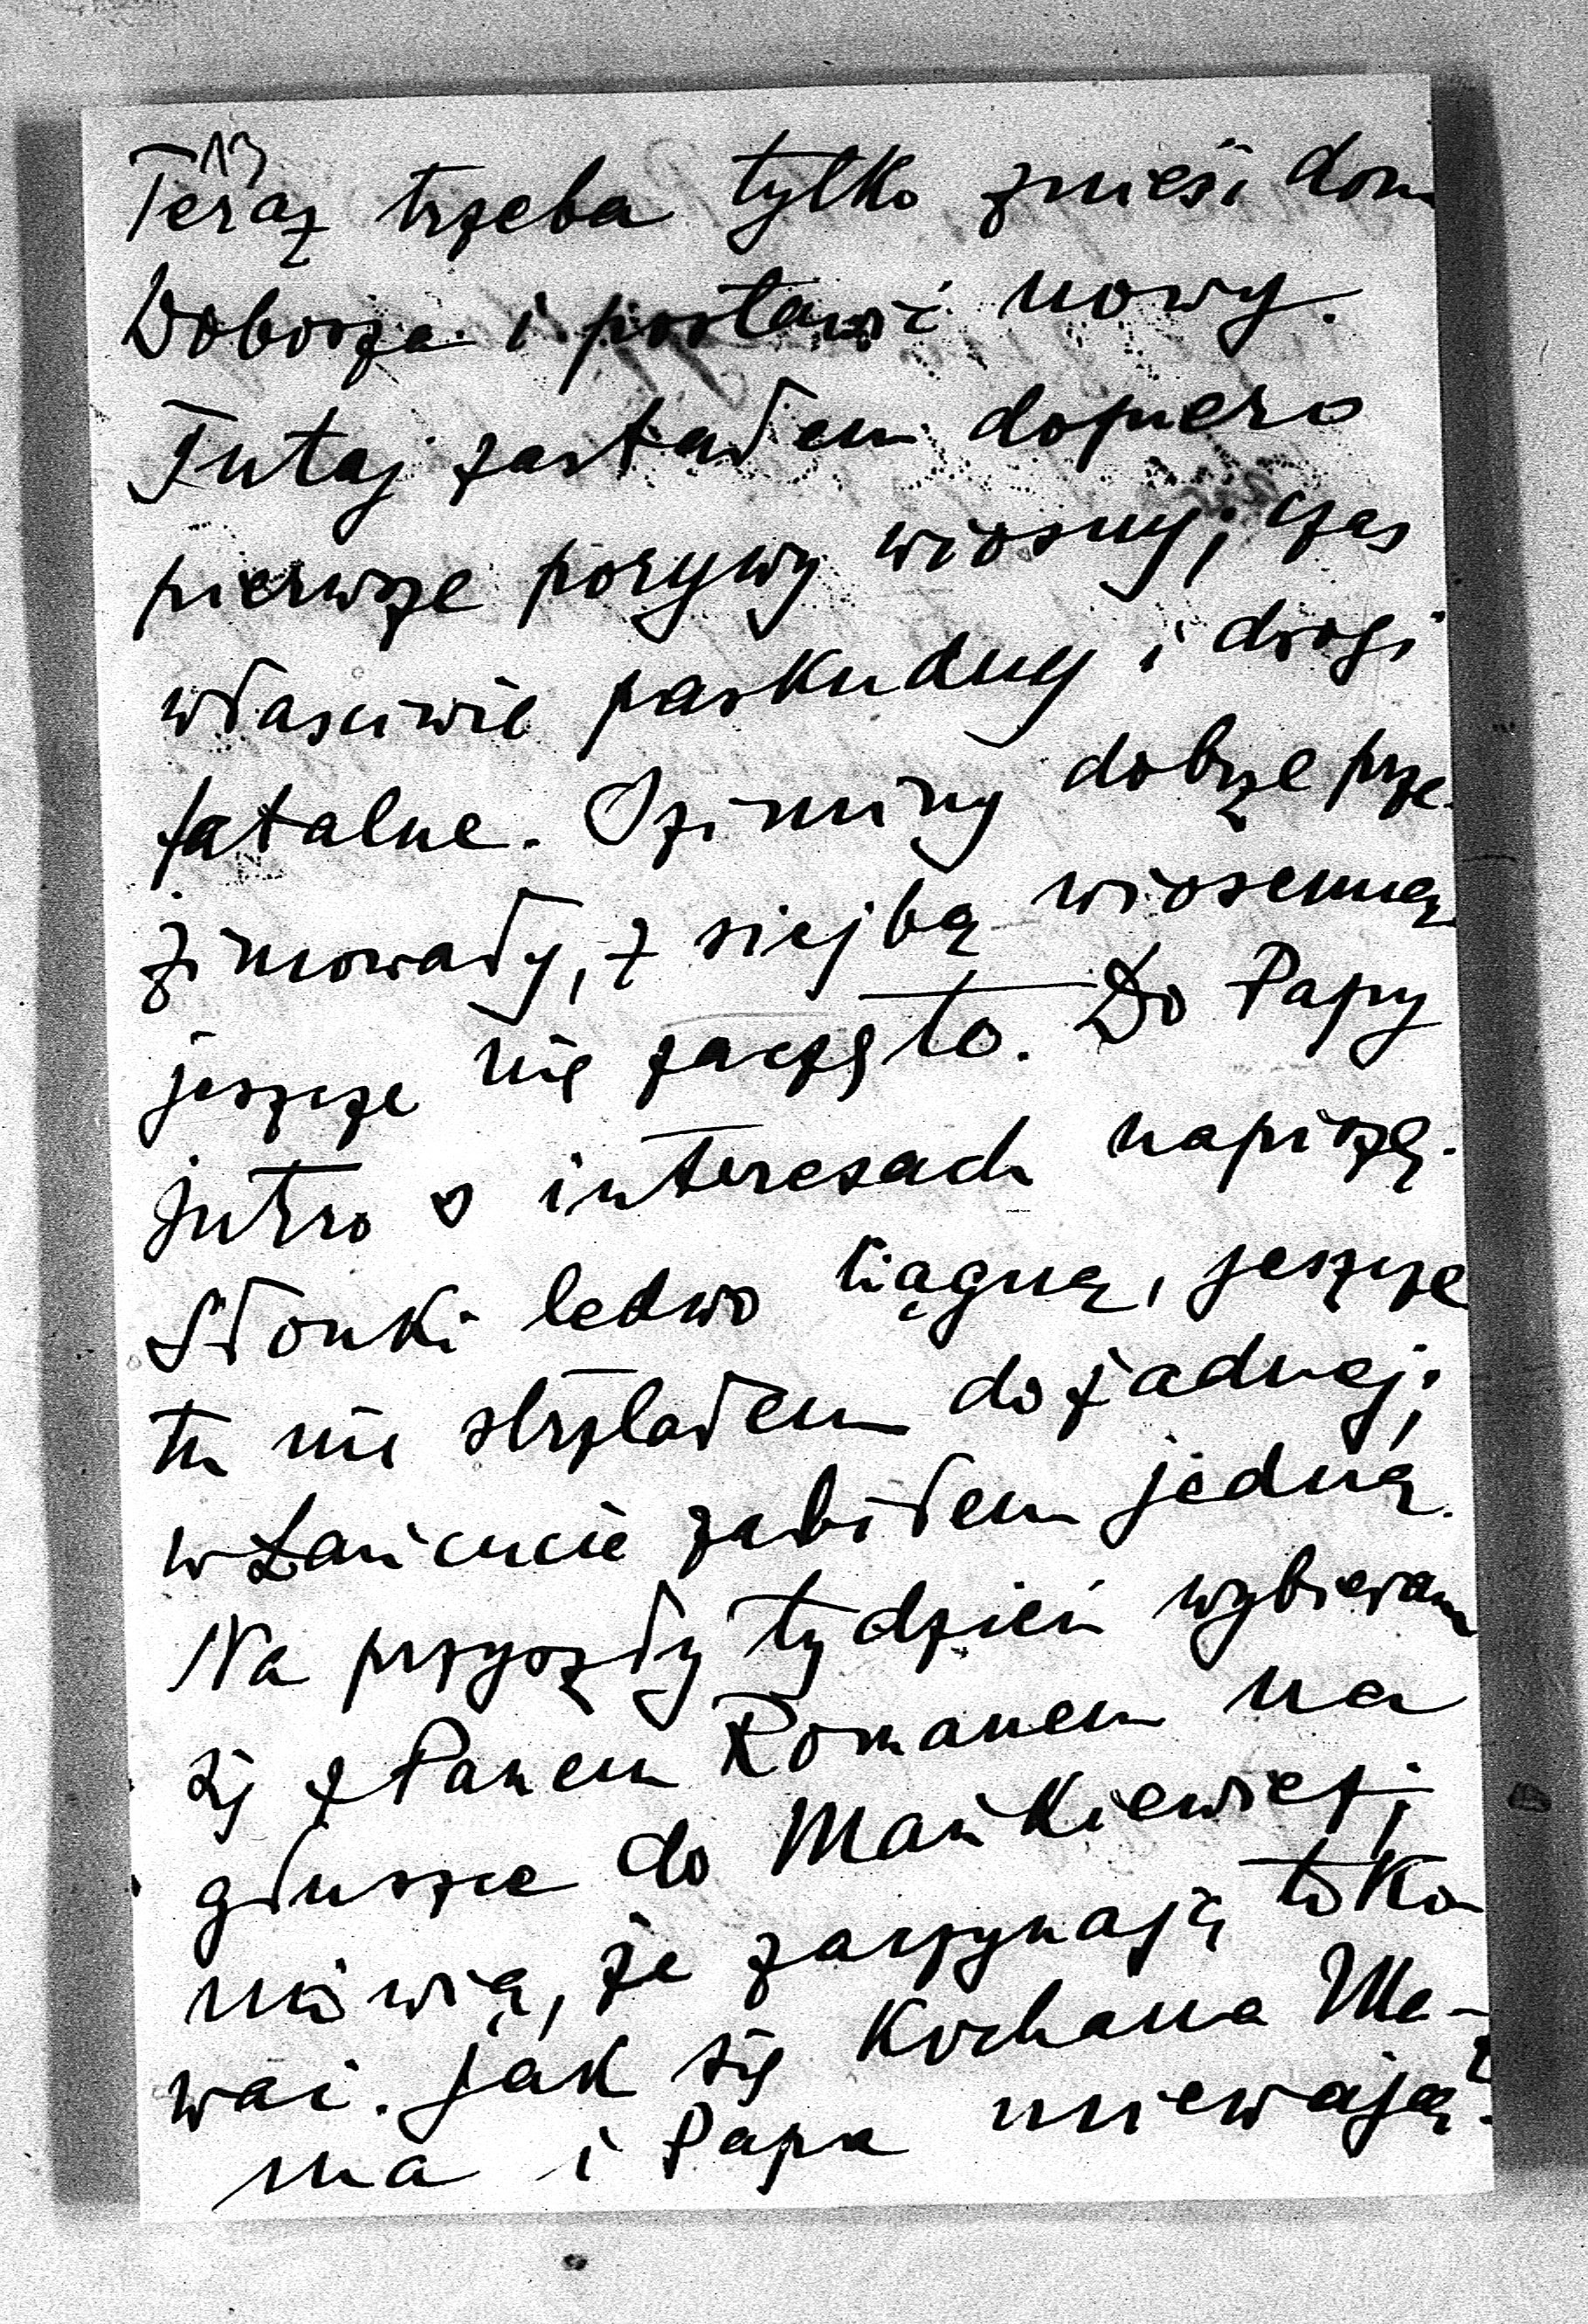 13
Teraz trzeba tylko znieść dom
Dobosza i postawić nowy.
Tutaj zastałem dopiero
pierwsze porywy wiosny; czas
właściwie paskudny i drogi
fatalne. Oziminy dobrze prze-
zimowały, z siejbą wiosenną
jeszcze nie zaczęto. Do Papy
jutro o interesach napiszę.
Słonki ledwo ciągną, jeszcze
tu nie strzelałem do żadnej;
w Łańcucie zabiłem jedną.
Na przyszły tydzień wybieram
się z Panem Romanem na
głuszce do Mańkiewicz;
mówią, że zaczynają toko-
wać. Jak się Kochana Ma-
ma i Papa miewają?